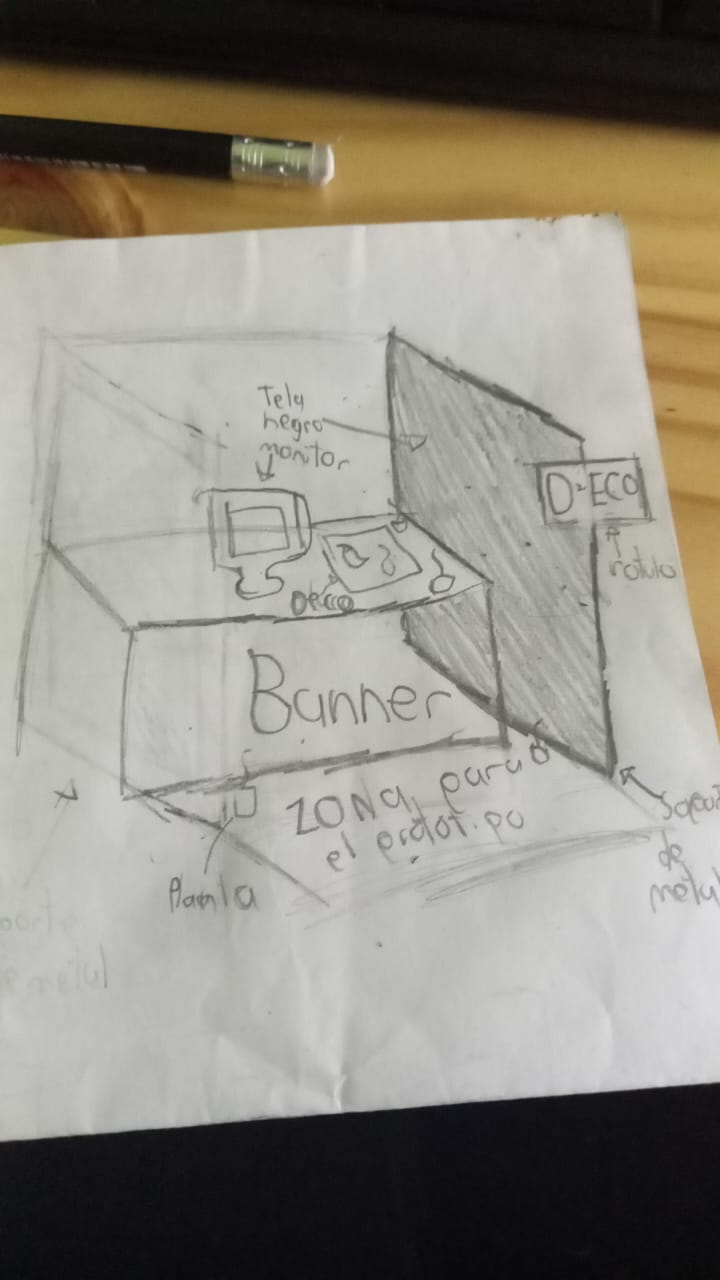 Tela
negro
monitor
D-ECO
rotulo
Deco
Banner
ZONA para
el prototipo
Planta
Soport
de
metal
porte
de metal